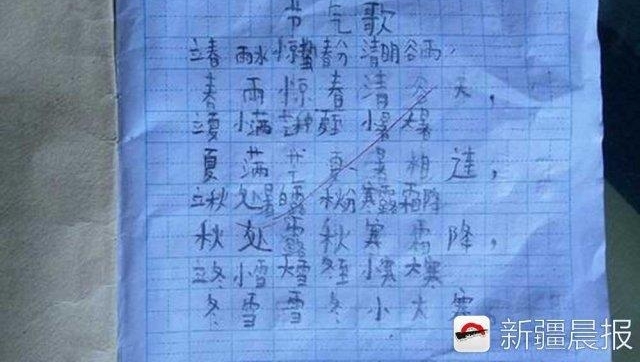 节气歌
立春 雨水 惊蛰 春分 清明 谷雨
春雨惊春清谷天，
立夏 小满 芒种 夏至 小暑 大暑
夏满芒夏暑相连，
立秋 处暑 白露 秋分 寒露 霜降
秋处露秋寒霜降，
立冬 小雪 大雪 冬至 小寒 大寒
冬雪雪冬小大寒
新疆晨报